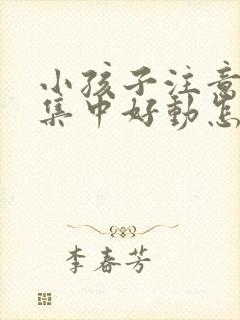 小孩子注意
集中好动怎
李春芳